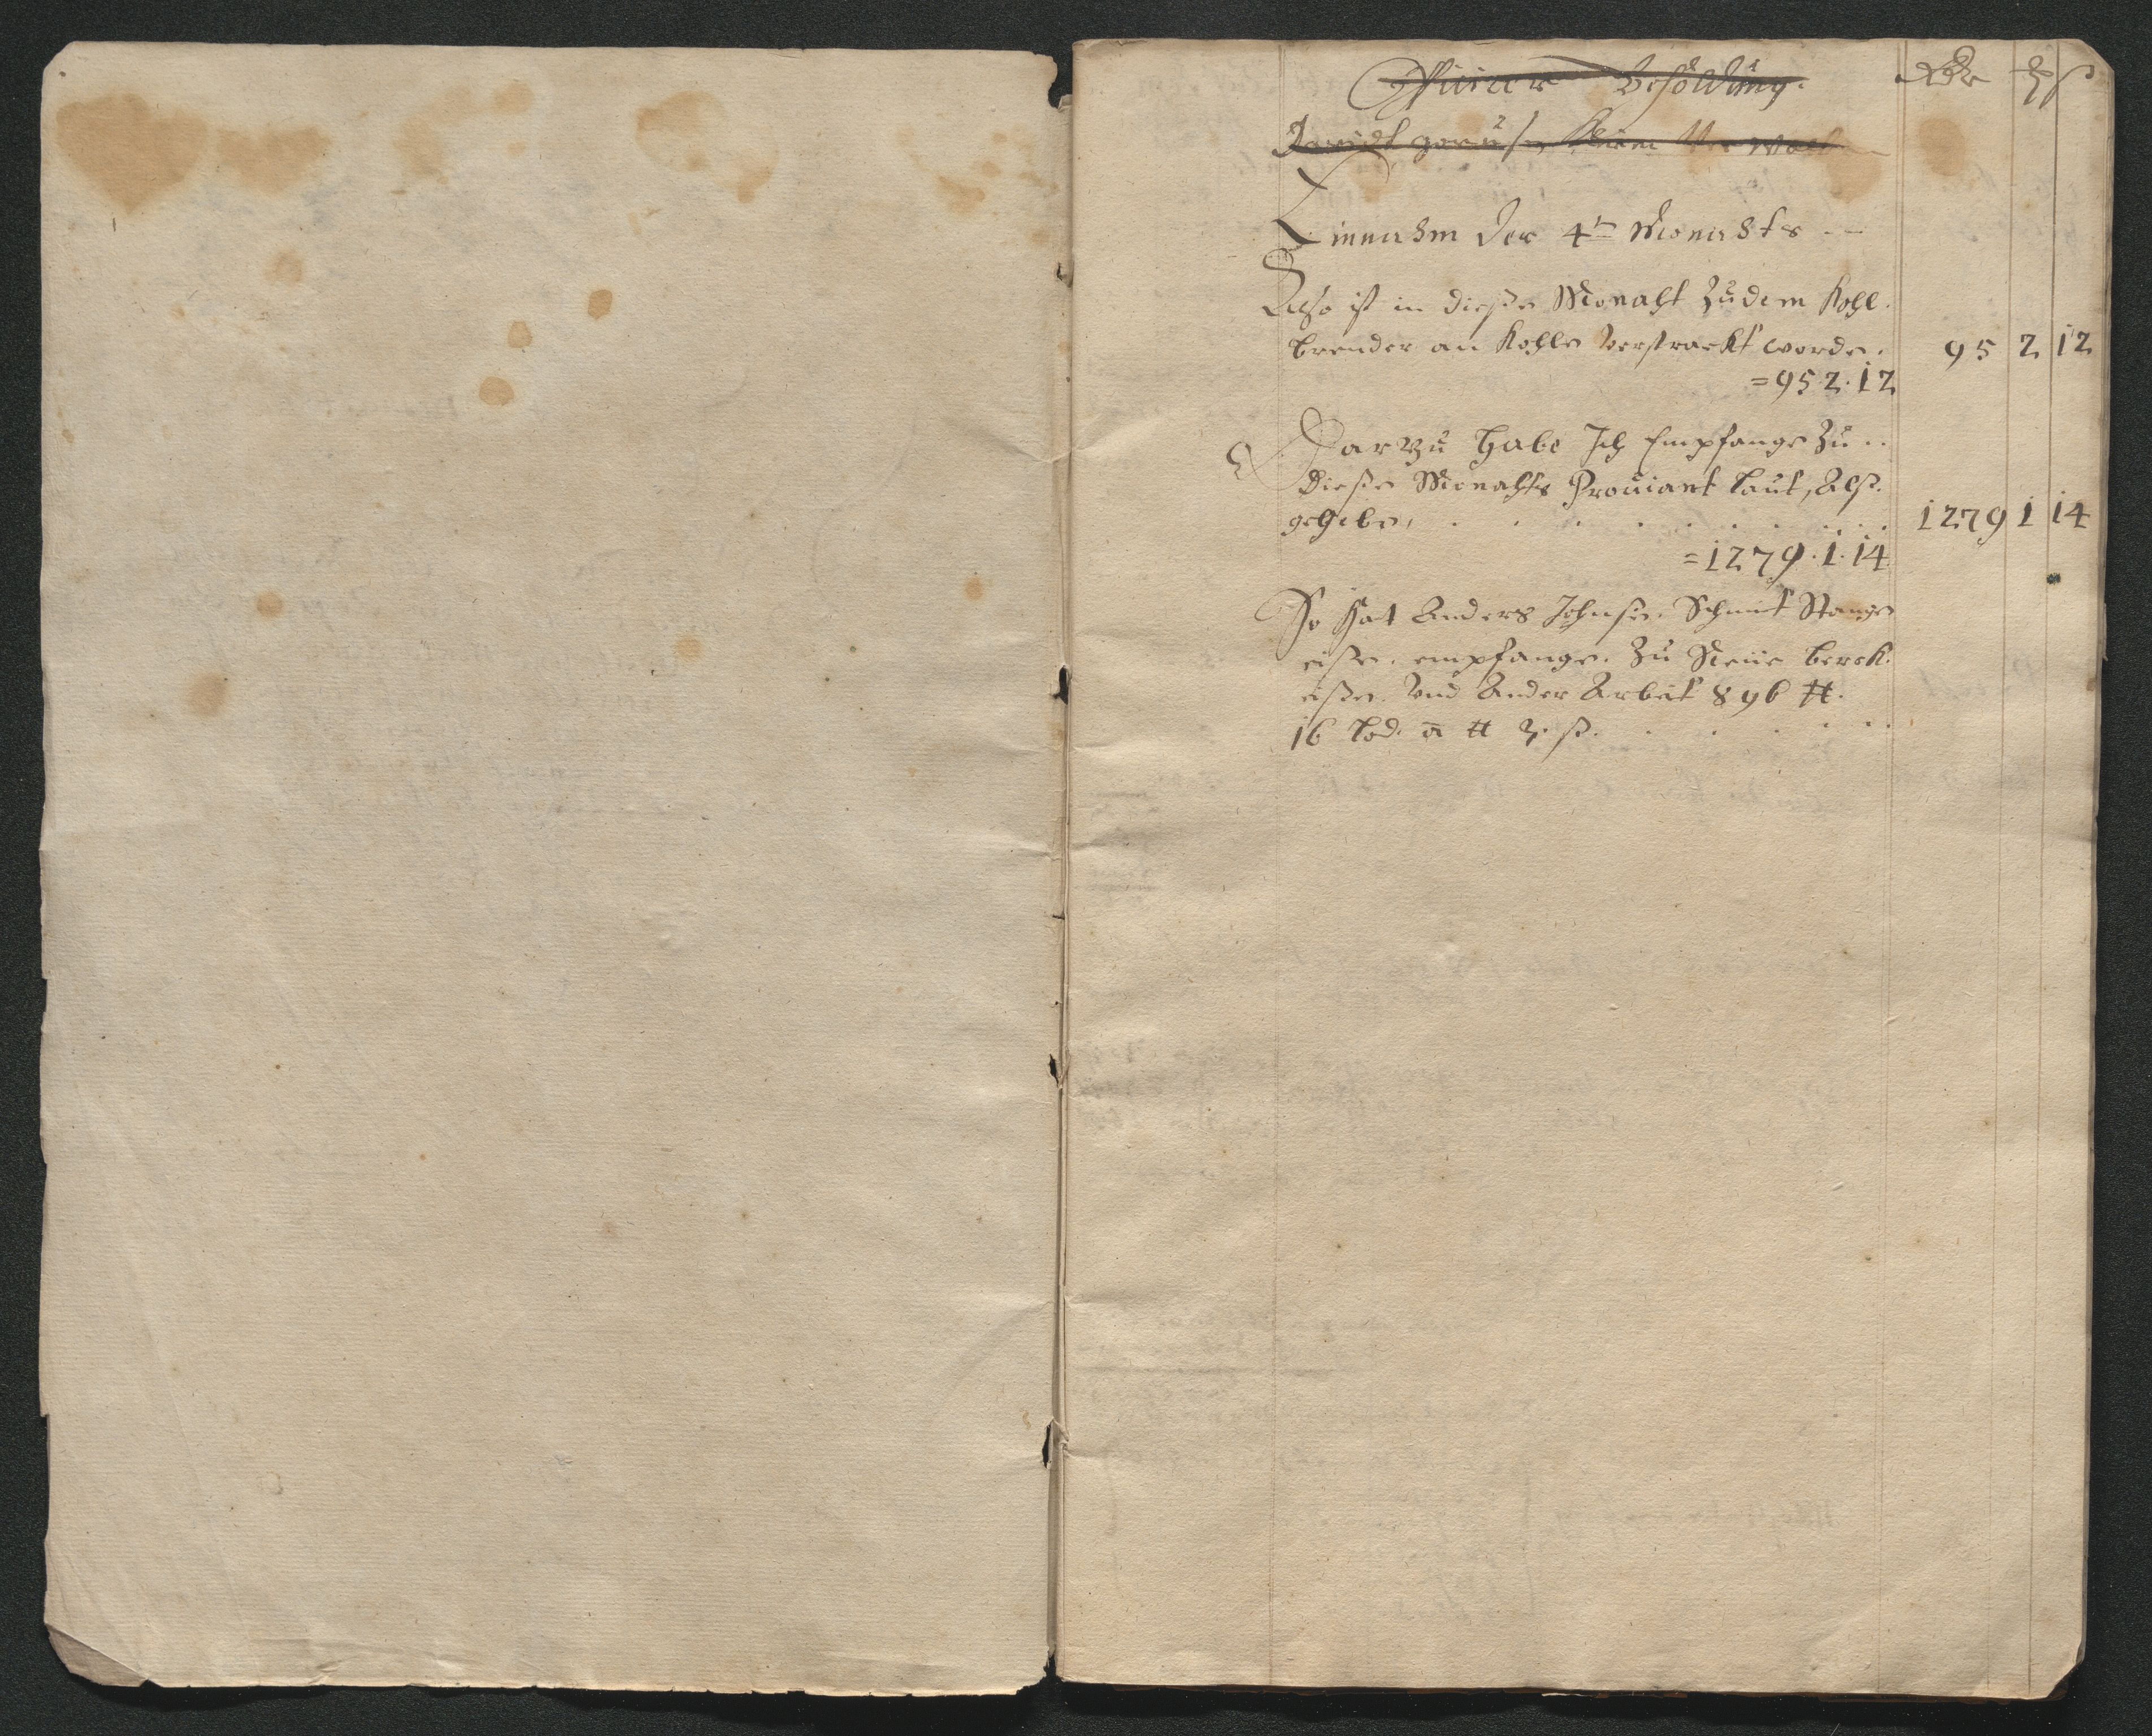 Officirer Besöldung. Rdr ß
Einnahm der 4t Monahts
Also ist in diesen Monaht Zu dem Kohl.
brender an Kohlen verstrackt worden. 95 2 12
=95.2.12
Darzu habe Ich Empfangen Zu ..
diesen Monahts Prouiant laut, Alß.
gegeben, . . . . . . . . 1279 1 14
=1279.1.14
So hat Anders Johnsen. Schmit Stangen
eisen. empfangen. Zu Neue berck.
eisen. Vnd Ander Arbeit 896 ℔.
16 Lod. a ℔ ß.